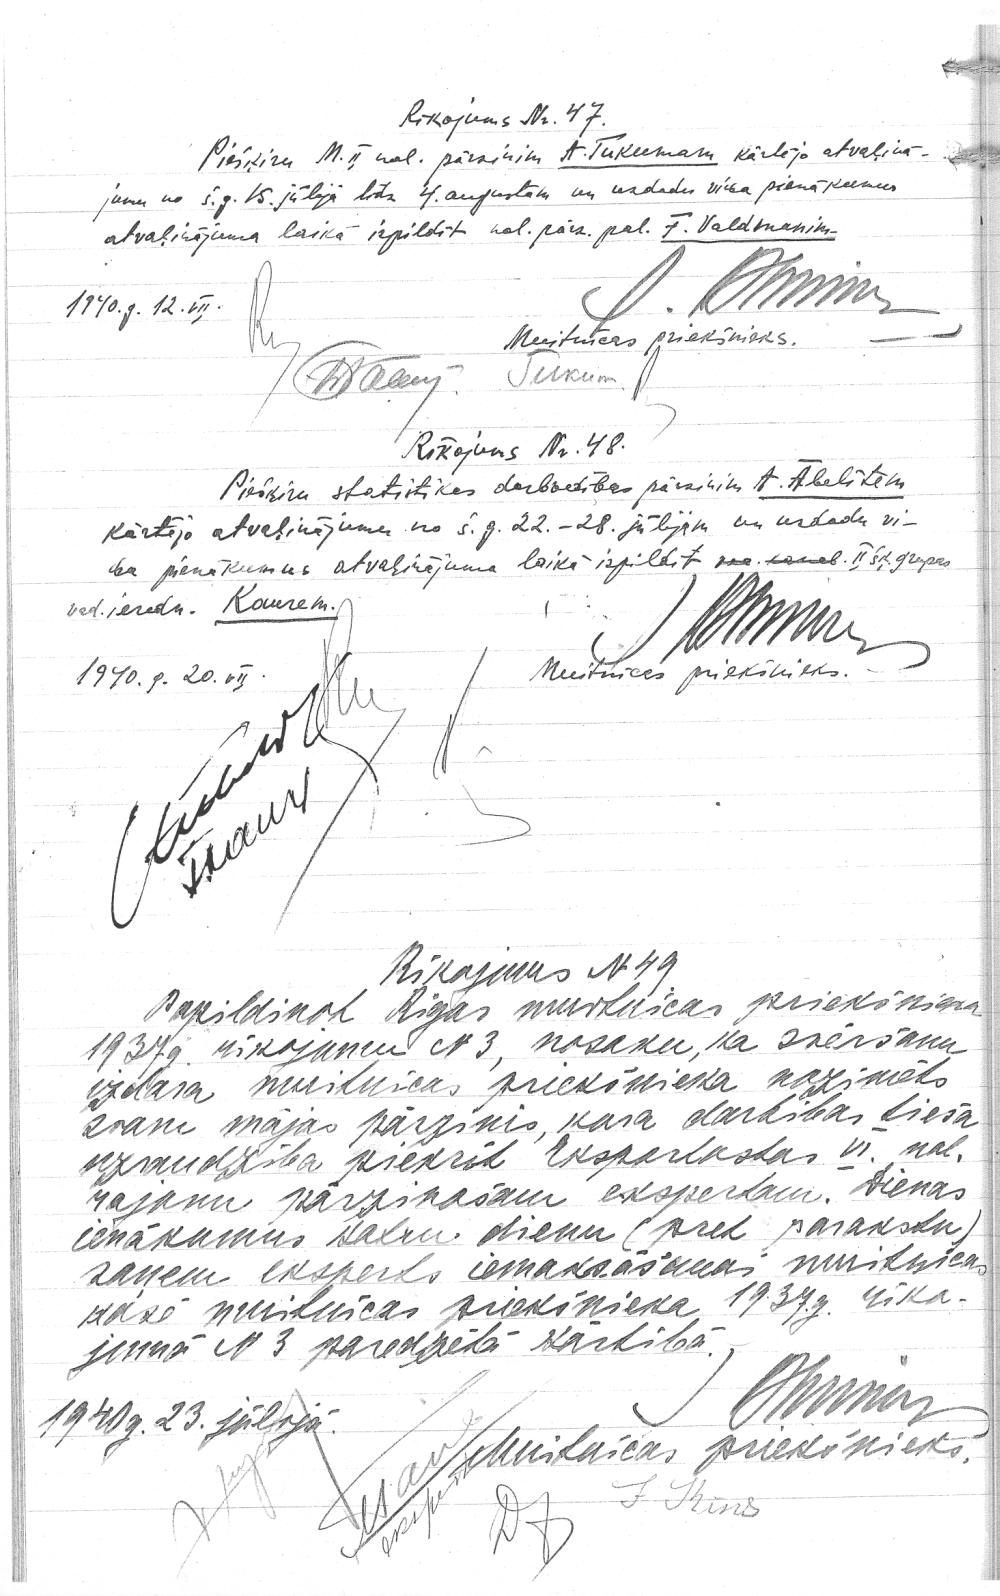 Rīkojums Nr. 47.
Piešķiru M. II nol. pārzinim A. Tukumam kārtējo atvaļinā-
jumu no š.g. 15. jūlijā līdz 4. augustam un uzdodu viņa pienākumus
atvaļinājuma laikā izpildīt nol. pārz. pal. F. Valdmanim.
1940. g. 12. VII.
Muitnīcas priekšnieks.
Tukum
Rīkojums Nr. 48.
Piešķiru statistikas darbvedības pārzinim A. Ābelītem
kārtējo atvaļinājumu no š.g. 22.-28. jūlijam un uzdodu vi-
ņa pienākumus atvaļinājuma laikā izpildīt II šķ. grupas
vad. ieredn. Kaurem.
1940. g. 20. VII.
Muitnīcas priekšnieks.
Rīkojums N 49
Papildinot Rīgas muitnīcas priekšnieka
1937g. rīkojumu N 3, nosaku, ka svēršanu
izdara muitnīcas priekšnieka nozīmēts
svaru mājas pārzinis, kura darbības tieša
uzraudzība piekrīt Eksportostas VI. nol.
rajonu pārzinošam ekspertam. Dienas
ienākumus katru dienu (pret parakstu)
saņem eksperts iemaksāšanai muitnīcas
kasē muitnīcas priekšnieka 1937g. rīko-
jumā N 3 paredzētā kārtībā.
1940g. 23. jūlijā.
Muitnīcas priekšnieks.
eksperts